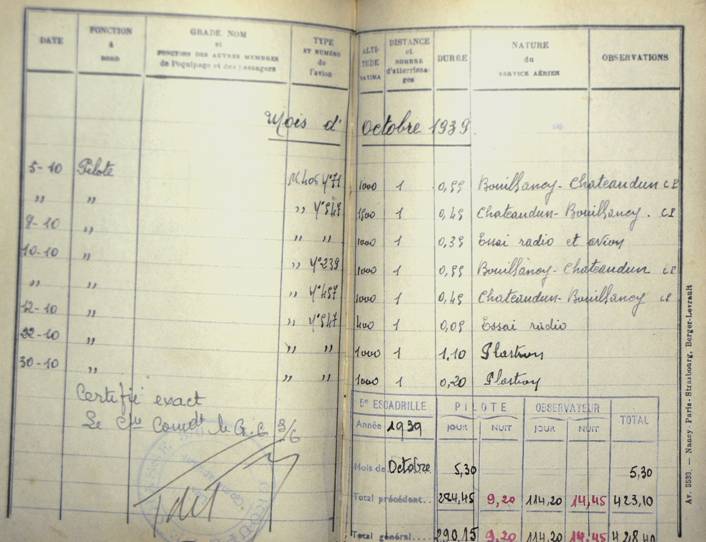 DATE FONCTION à BORD GRADE NOM et FONCTION DES AUTRES MEMBRES de l'équipage et des passagers TYPE ET NUMÉRO de l'avion ALTITUDE MAXIMA DISTANCE et NOMBRE d'atterrissages DURÉE NATURE du SERVICE AÉRIEN OBSERVATIONS
Mois d' Octobre 1939.
5-10 Pilote 1000 1 Bouillancy - Chateaudun
" " 1 0,45 Chateaudun - Bouillancy.
" " " 1000 1 0,35 Essai radio et avion
10-10 " " N°239 1000 1 Bouillancy - Chateaudun
" " " N°457 1000 1 0,45 Chateaudun - Bouillancy
12-10 " " 400 1 Essai radio
22-10 " " " 1000 1 1,10 Plastron
30-10 " " " 1000 1 0,20 Plastron
Certifié exact
Le
5e ESCADRILLE PILOTE OBSERVATEUR TOTAL
Année 1939 JOUR NUIT JOUR NUIT
Mois de Octobre 5,30 5,30
Total précédent... 284,45 9,20 114,20 14,45 423,10
Total général.... 290,15 9,20 114,20 14,45 428,40
Av. 5530. — Nancy - Paris - Strasbourg, Berger-Levrault